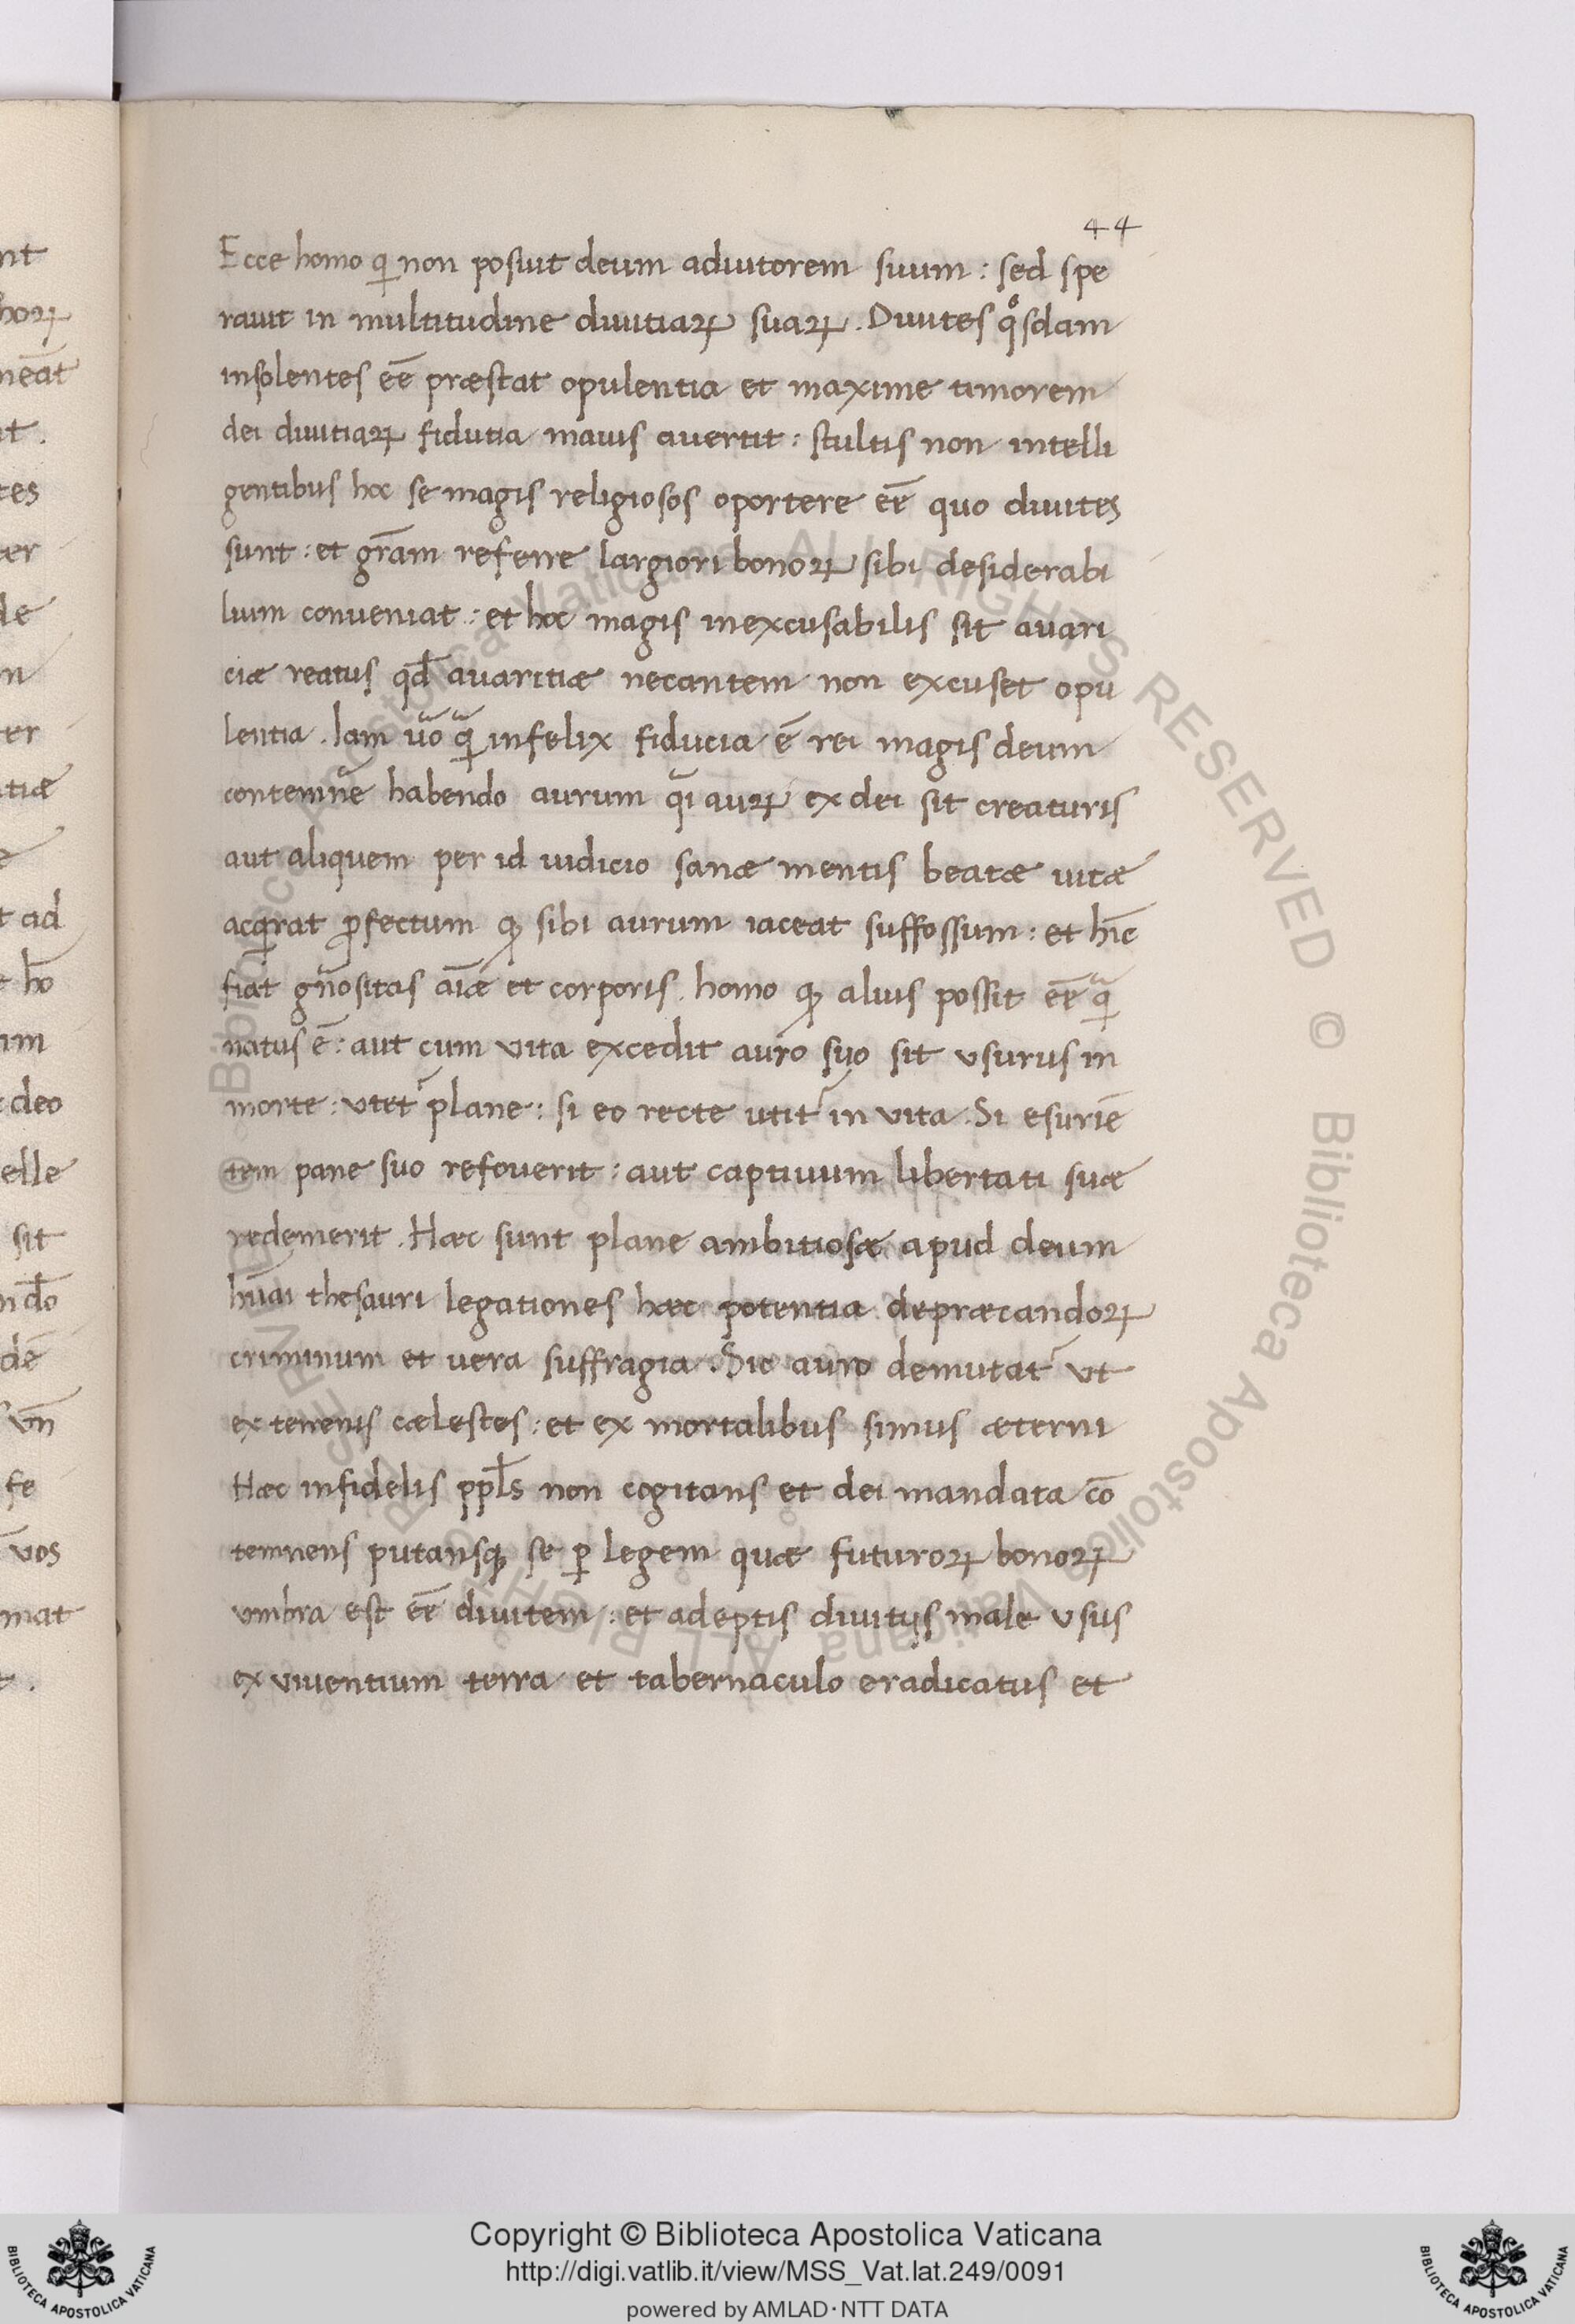 44
Ecce homo qi non posiuit deum adiutorem suum : sed spe
rauit in multitudine diuitiaꝝ suaꝝ . Diuites qͦsdam
insolentes eē præstat opulentia et maxime timorem
dei diuitiaꝝ fidutia maius auertit : stultis non intelli
gentibus hoc se magis religiosos oportere eē quo diuites
sunt : et grām referre largiori bonoꝝ sibi desiderabi
lium conueniat : et hoc magis inexcusabilis sit auari
ciæ reatus qđ auaritiæ necantem non excuset opu
lentia . Iam uō infelix fiducia ē rei magis deum
contemnē habendo aurum auꝝ ex dei sit creaturis
aut aliquem per id iudicio sanæ mentis beatæ uitæ
acqrat ꝓfectum ꝙ sibi aurum iaceat suffossum : et hīc
fiat gn̄ositas aīæ et corporis . homo ꝙ alius possit eē
natus ē : aut cum vita excedit auro suo sit vsurus in
morte : vtet᷑ plane : si eo recte utit᷑ in vita . Si esuriē
tem pane suo refouerit : aut captiuum libertati suæ
redemerit . Hæc sunt plane ambitiosæ apud deum
hūai thesauri legationes hæc potentia depræcandoꝝ
criminum et uera suffragia . Sic auro demutat᷑ vt
ex terrenis cælestes : et ex mortalibus simus æterni
Hæc infidelis pplꝉs non cogitans et dei mandata cō
temnens putansqꝫ se ꝑ legem quæ futuroꝝ bonoꝝ
vmbra est eē diuitem : et adeptis diuitijs male vsus
ex viuentium terra et tabernaculo eradicatus et
nt
hoꝝ
neāt
it .
tes
ter
de
n
ter
tiæ
e
t ad
t hō
im
deo
elle
sit
dē
vn̄
fe
vos
mat
t .
© Biblioteca Apostolica Vaticana ALL RIGHTS RESERVED © Biblioteca Apostolica Vaticana ALL RIGHTS RESERVED
BIBLIOTECA APOSTOLICA VATICANA
Copyright © Biblioteca Apostolica Vaticana
http://digi.vatlib.it/view/MSS_Vat.lat.249/0091
powered by AMLAD·NTT DATA
BIBLIOTECA APOSTOLICA VATICANA